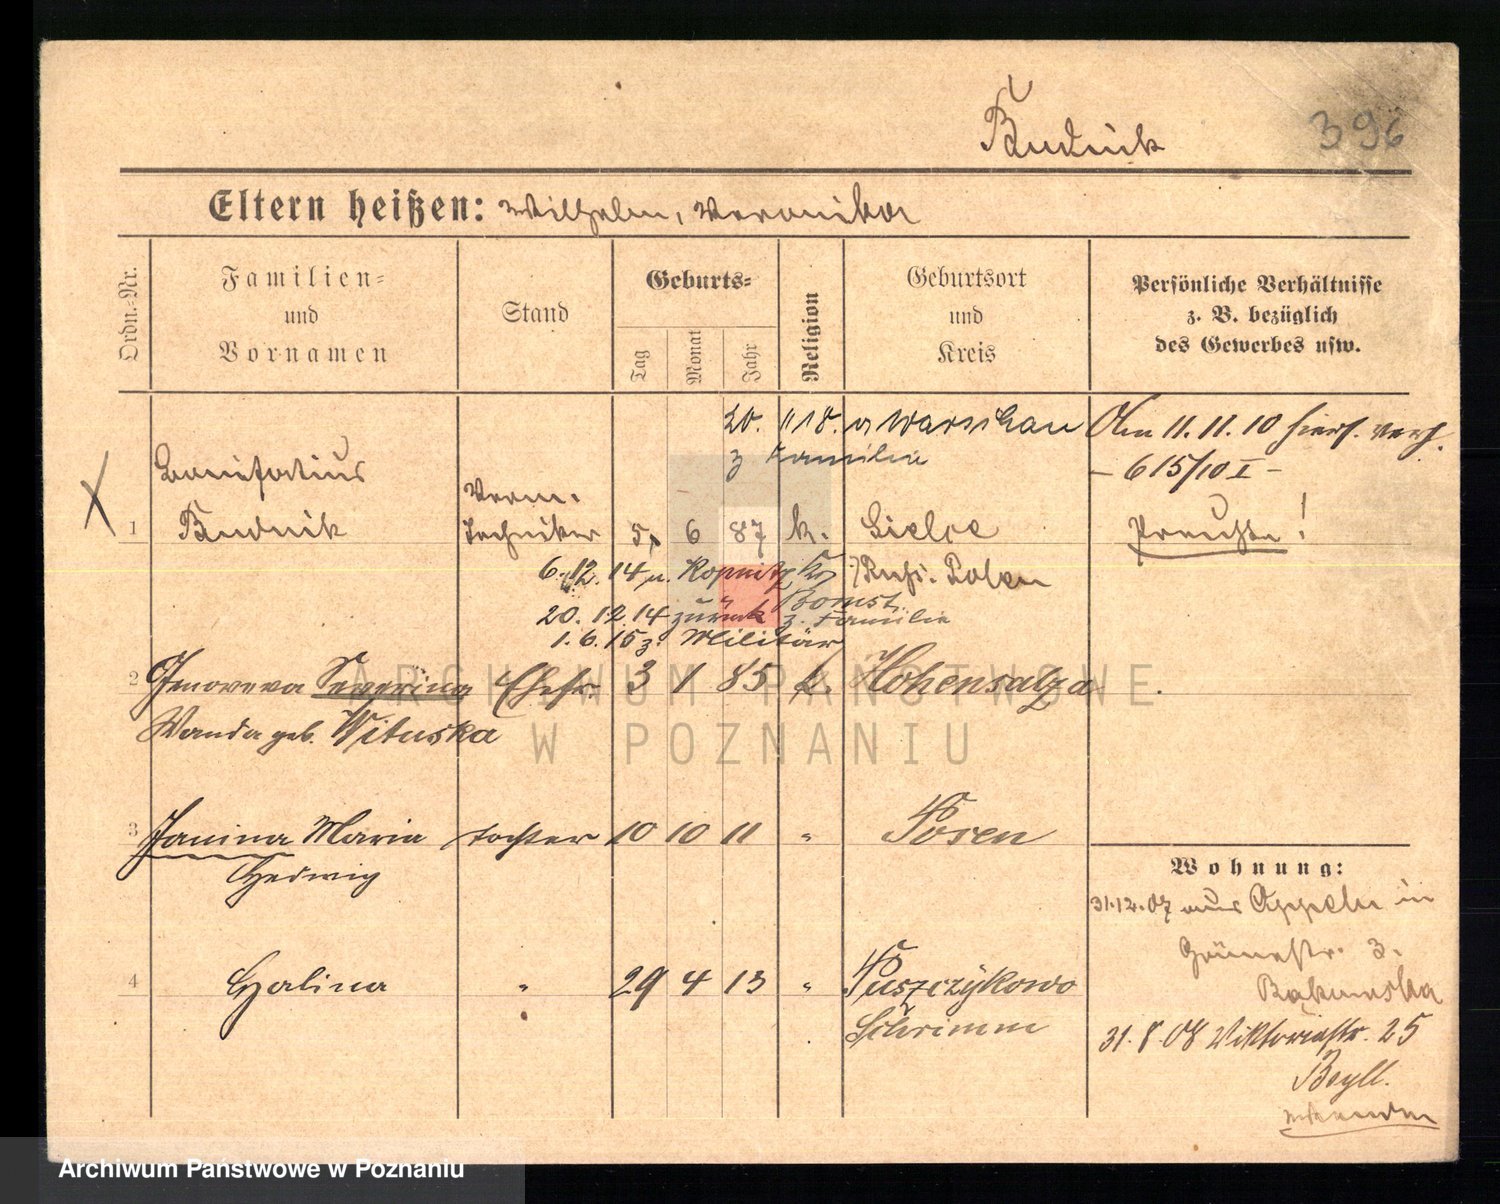 Budnik
396
Eltern heißen: Wilhelm, Veronika
Ordn.-Nr.
Familien-
und
Vornamen
Stand
Geburts-
Tag
Monat
Jahr
Religion
Geburtsort
und
Kreis
Persönliche Verhältnisse
z. B. bezüglich
des Gewerbes usw.
20. 11 18. n Warschau
z Familie
Am 11. 11. 10 hiers. verh.
- 615/10 I -
Bonifatius
Budnik
Verm.
Techniker
1
5.
6
87
k.
Kielce
Preuße!
6. 12. 14 n. Kopnitz Kr
Bomst.
Russ. Polen
20. 12. 14 zurück z. Familie
1. 6. 15 z. Militär
2
Genoveva Severina
Ehefr.
3
1
85
k.
Hohensalza
Wanda geb. Wituska
3
Janina Maria
Tochter
10
10
11
"
Posen
Hedwig
4
Halina
"
29
4
13
"
Puszczykowo
Schrimm
Wohnung:
31.12.07 aus Oppeln in
Grünestr. 3.
31. 8. 08 Viktoriastr. 25
ARCHIWUM PAŃSTWOWE
W POZNANIU
Archiwum Państwowe w Poznaniu